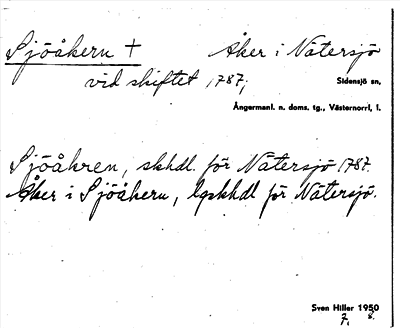 Sjöåkern † Åker i Nätersjö
vid skiftet 1787,
Sidensjö sn,
Ångermanl. n. doms. tg., Västernorrl, l.
Sjöåkren, skhdl. för Nätersjö 1787.
Åker i Sjöåkern, lgskhdl för Nätersjö.
Sven Hiller 1950
7. 8.